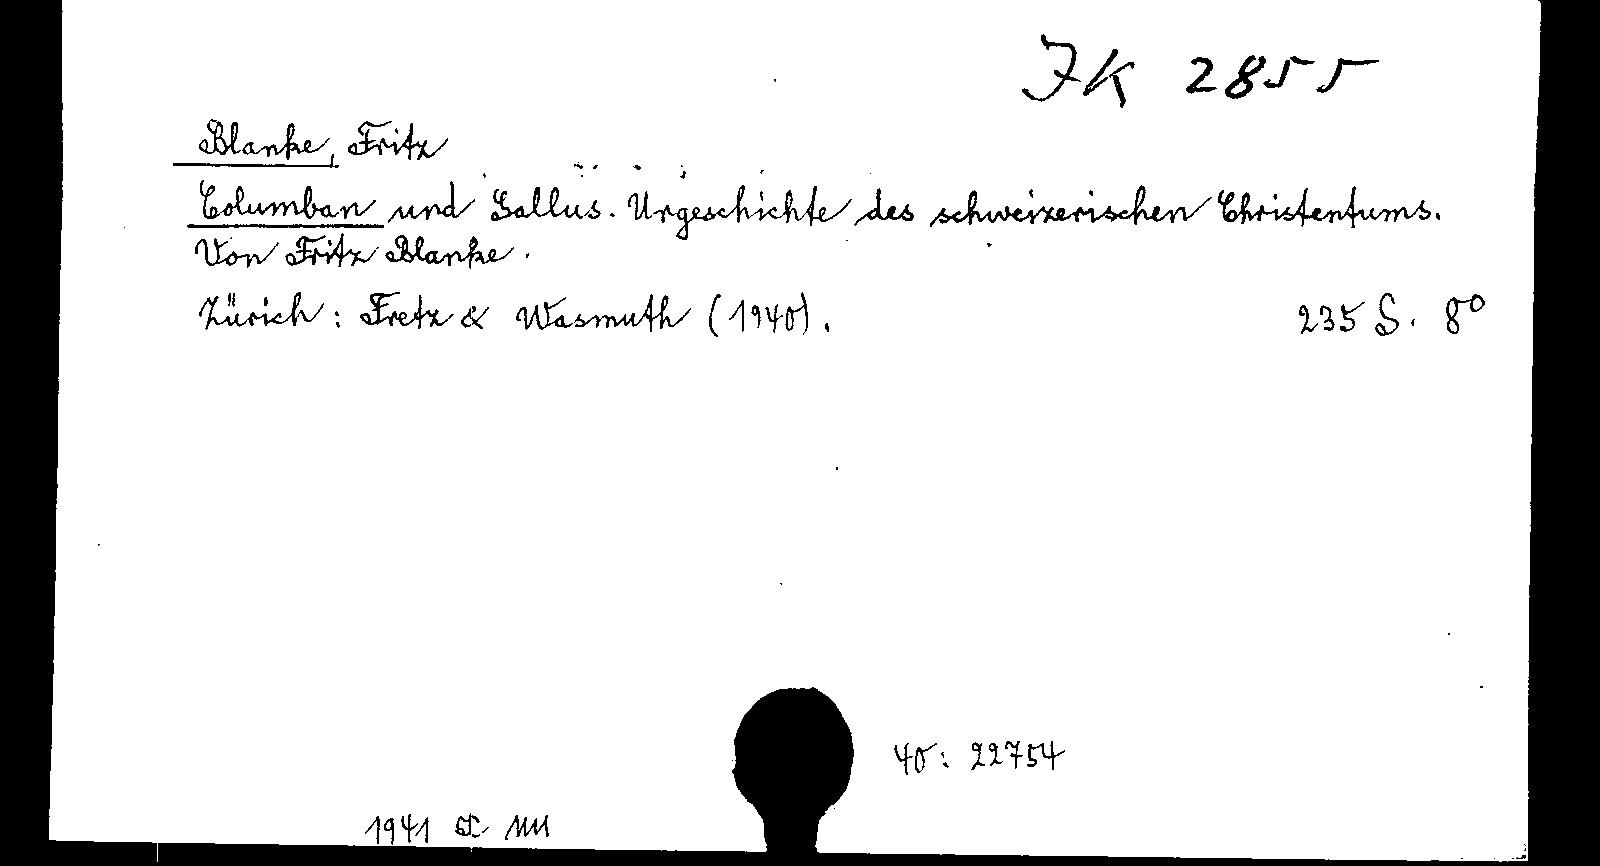 JK 2855
Blanke, Fritz
Columban und Gallus. Urgeschichte des schweizerischen Christentums.
Von Fritz Blanke.
Zürich: Fretz & Wasmuth (1940). 235 S. 8°
40: 22754
1941